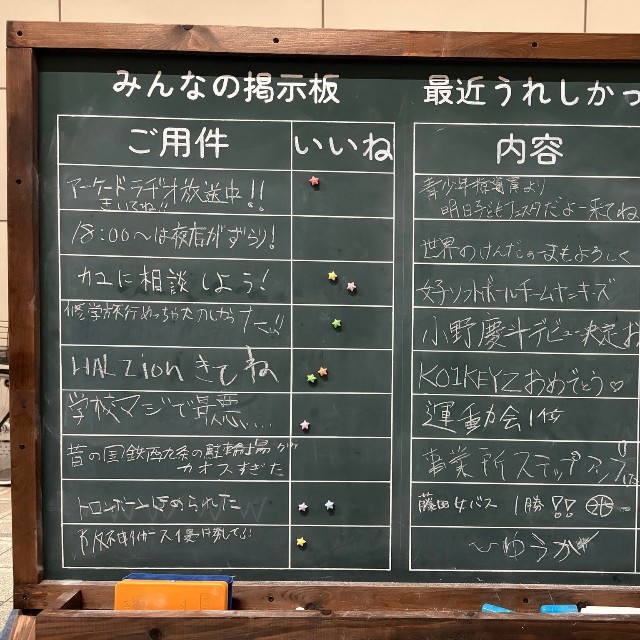 みんなの掲示板
ご用件
いいね
アーケードラヂオ放送中!!
きいてね!!
18:00〜は夜店がずらり!
カユに相談しよう!
修学旅行めっちゃたのしかった!!
HALZionきてね
学校マジで最悪....
昔の国鉄西九系の駐輪場が
カオスすぎた
トロンボーンほめられた
阪神タイガース優勝して!!
最近うれしかっ
内容
青少年指導員より
明日子どもフェスタだよー来てね
世界のけんだま
まもようしく
ソフトボールチームヤンキーズ
小野慶斗デビュー決定お
KO1KEYZおめでとう♡
運動会1位
事業所ステップアップ
藤田女バス 1勝!!
〜ゆうが